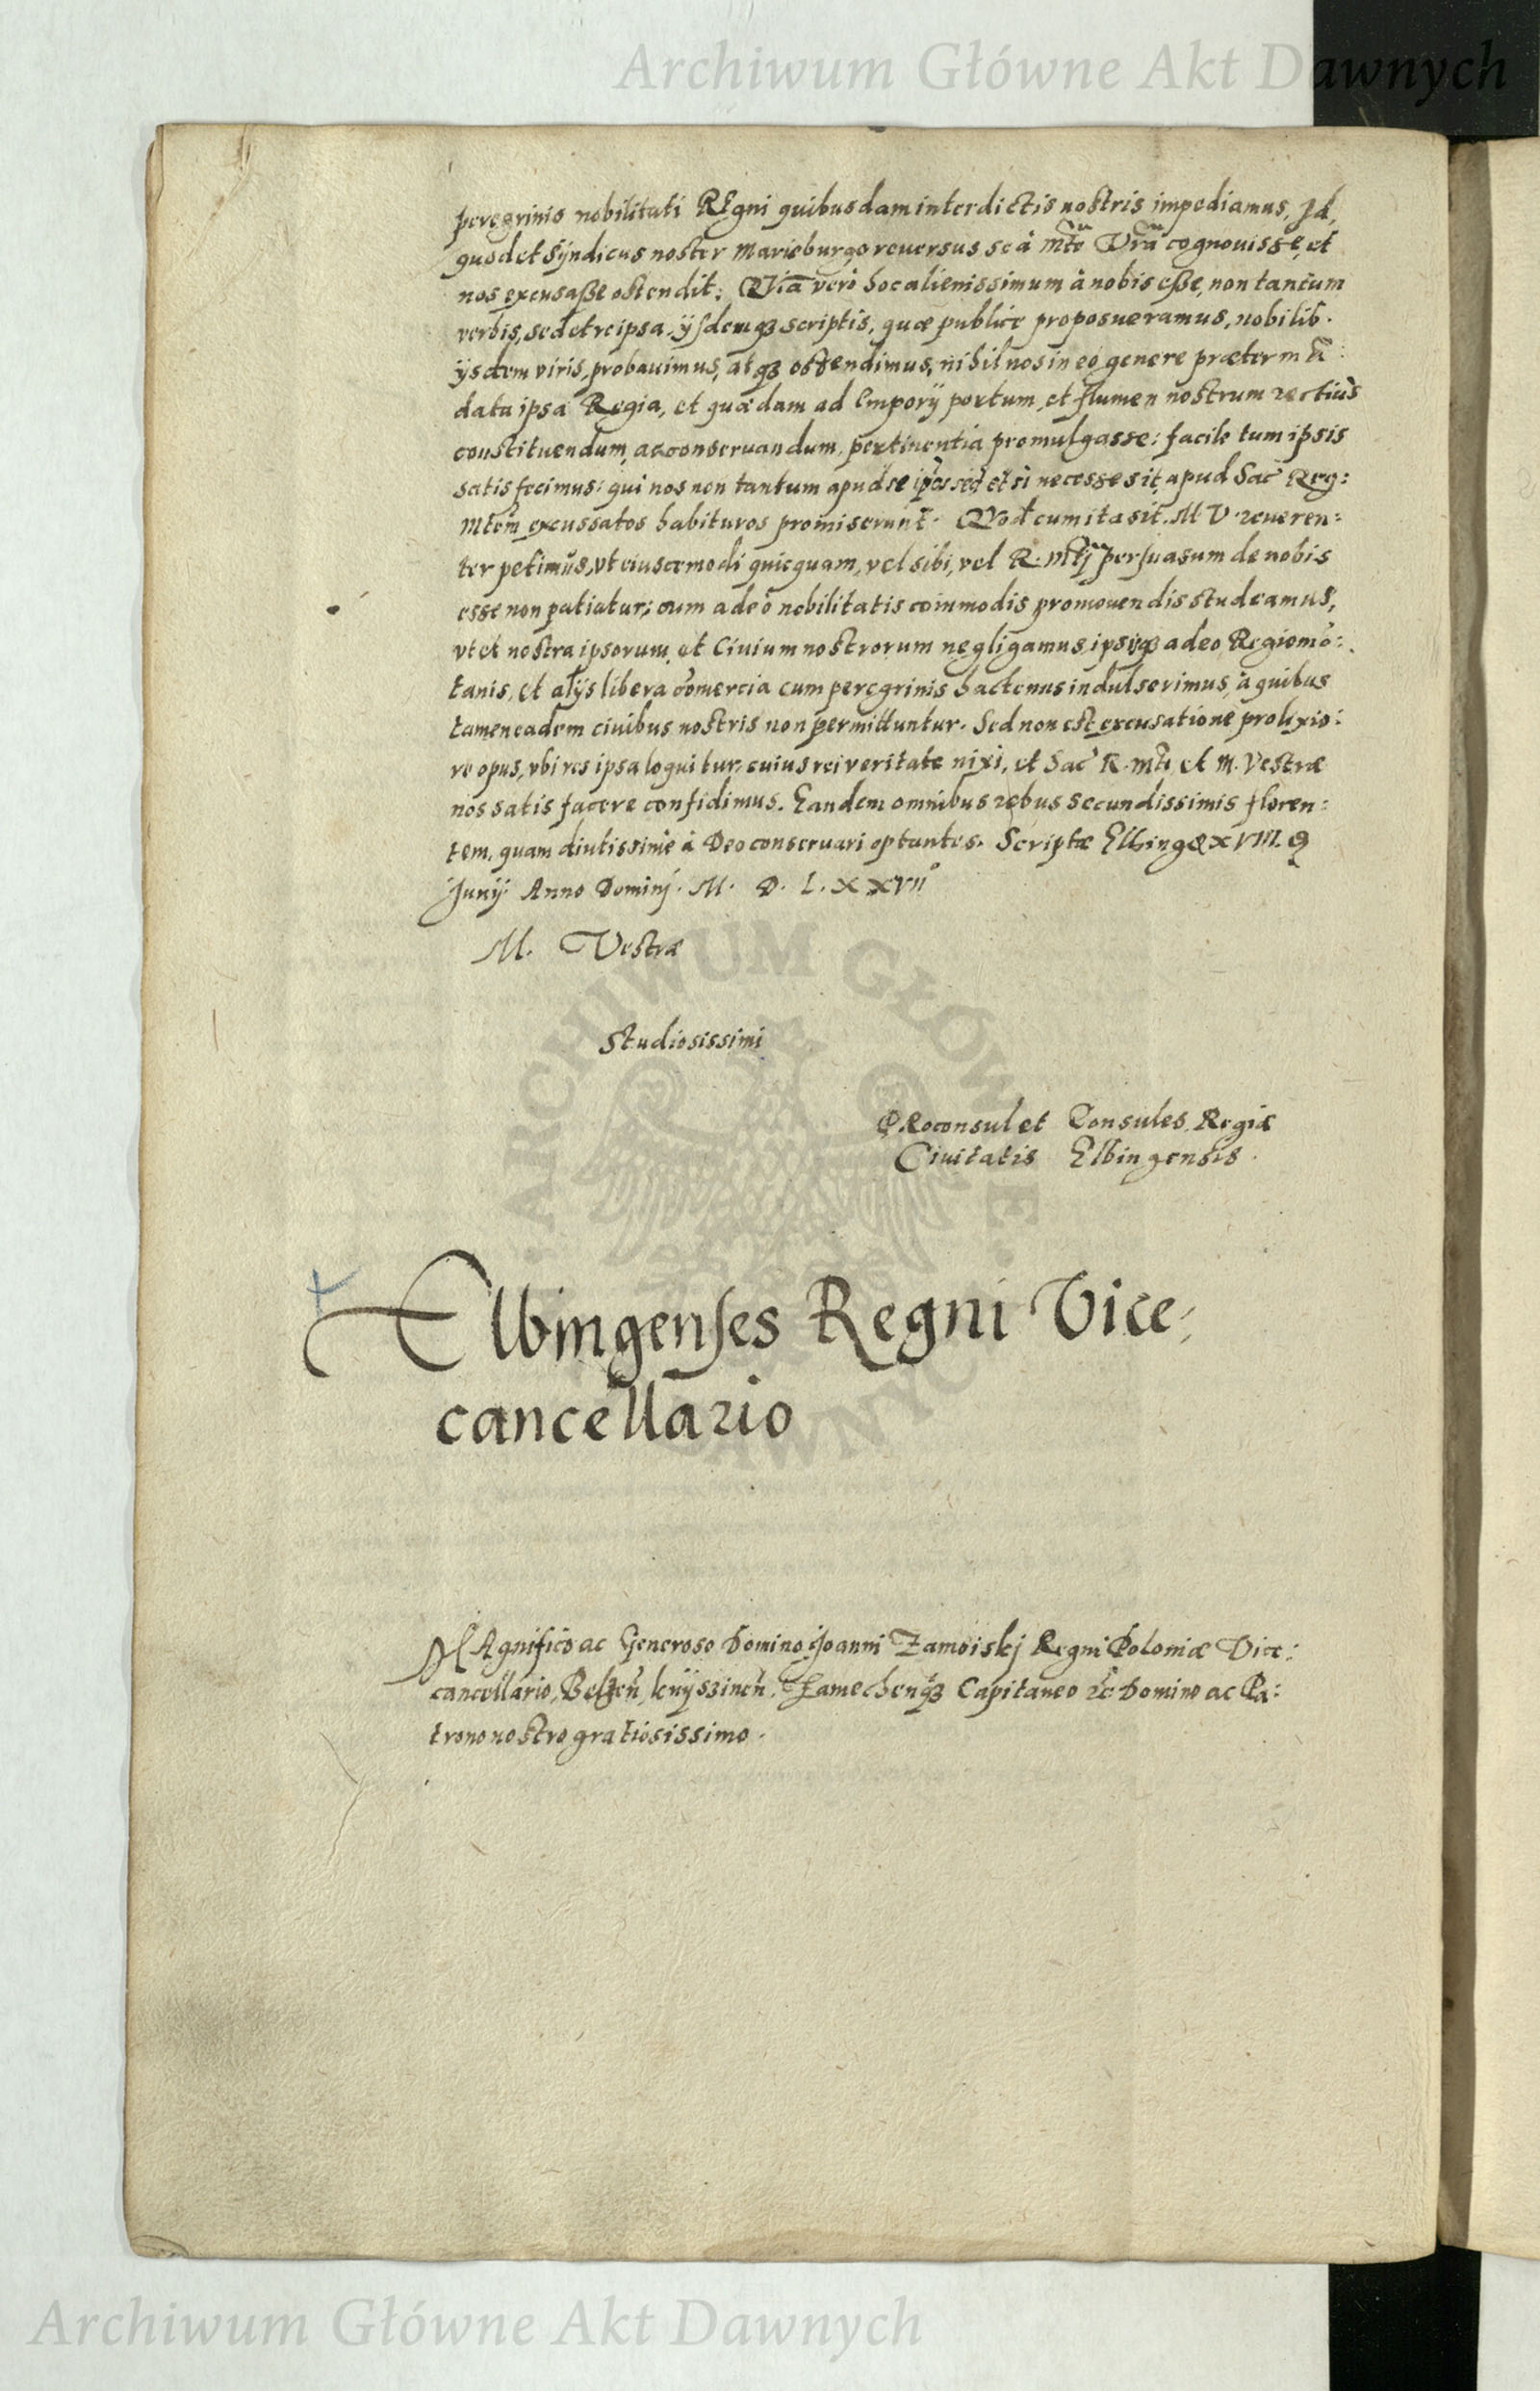 Archiwum Główne Akt Dawnych
peregrinis nobilitati REgni quibusdam interdictis nostris impediamus, Id,
quod et Syndicus noster Marieburgo reuersus se à Mte Vra cognouisse, et
nos excusaße ostendit: QVia verò hoc alienissimum à nobis eße, non tantum
verbis, sed et re ipsa, ijsdemq3 scriptis, quæ publice proposueramus, nobilib.
ijsdem viris, probauimus, atq3 ostendimus, nihil nos in eo genere præter mã:
data ipsa Regia, et quædam ad Emporij portum, et flumen nostrum rectius
constituendum, ac conseruandum, pertinentia promulgasse: facile tum ipsis
satis fecimus: qui nos non tantum apud se ipsos sed et si necesse sit, apud Sac Reg:
Mtem excussatos habituros promiserunt. QVod cum ita sit, M V reueren:
ter petimus, vt eiuscemodi quicquam, vel sibi, vel R. Mtj persuasum de nobis
esse non patiatur; cum adeò nobilitatis commodis promouendis studeamus,
vt et nostra ipsorum, et Ciuium nostrorum negligamus, ipsisq3 adeo Regiomõ:
tanis, et alijs libera cõmercia cum peregrinis hactenus indulserimus, à quibus
tamen eadem ciuibus nostris non permittuntur. Sed non est excusatione prolixio:
re opus, vbi res ipsa loquitur, cuius rei veritate nixi, et Sac R. Mti et M. Vestræ
nos satis facere confidimus. Eandem omnibus rebus secundissimis floren:
tem, quam diutissimè à Deo conseruari optantes. Scriptæ Elbingæ XVIII.
Junij Anno Dominj. M. D. L. XXVII°
M. Vestræ
Studiosissimi
PRoconsul et Consules Regiæ
Ciuitatis Elbingensis.
Elbingenses Regni Vice:
cancellario
MAgnifico ac Generoso Domino Joanni Zamoiskj Regni Poloniæ Vice:
cancellario, Belzeñ, knijszineñ, Zamechenq3 Capitaneo &c Domino ac Pa:
trono nostro gratiosissimo.
ARCHIWUM GŁÓWNE AKT DAWNYCH
Archiwum Główne Akt Dawnych